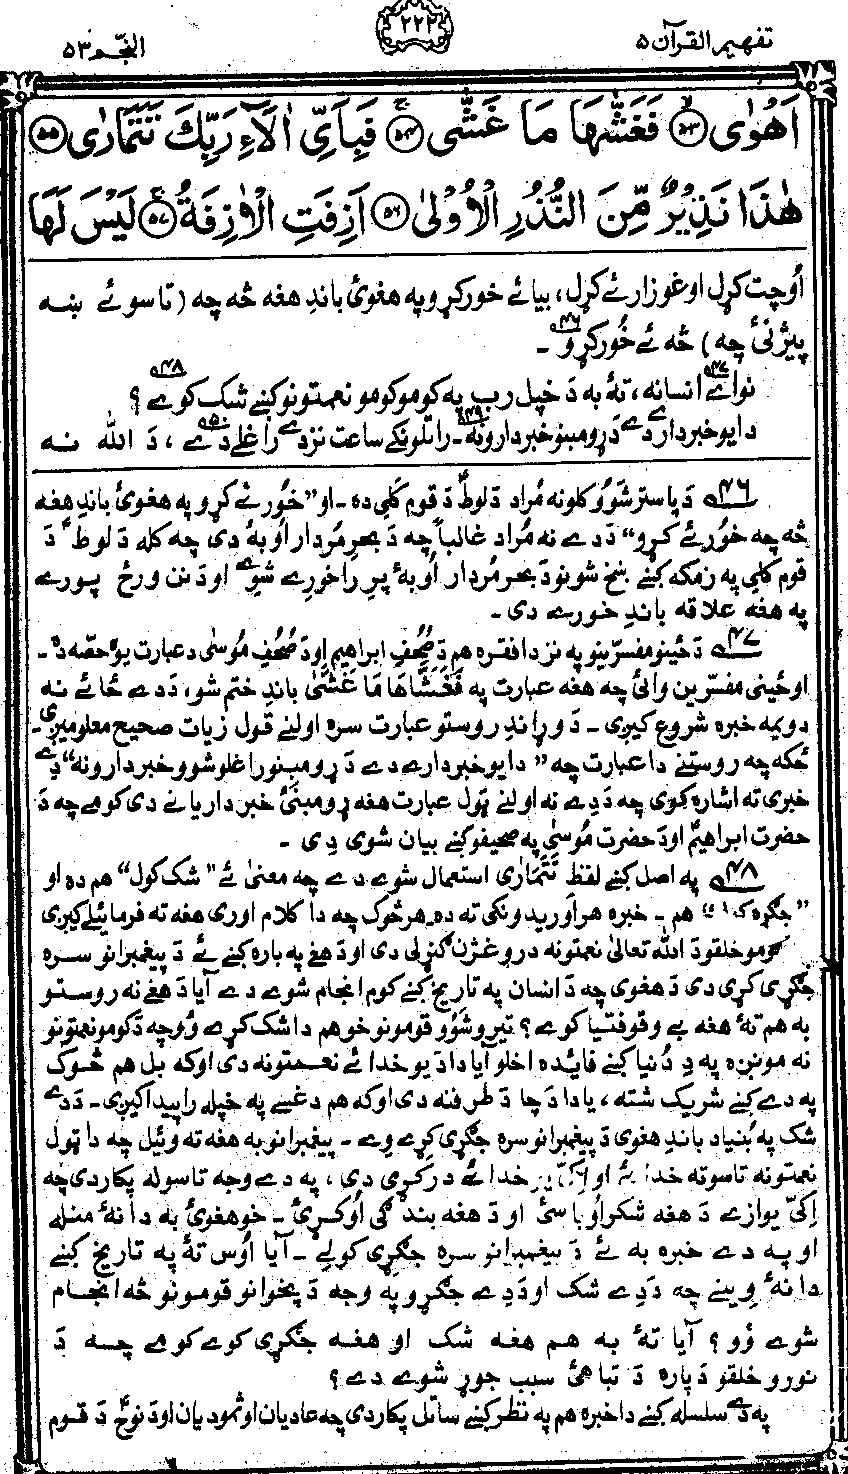 تفهیم القرآن ۵
۲۲۲
النّجم ۵۳
اَهْوٰى ۵۳ فَغَشّٰىهَا مَا غَشّٰى ۵۴ فَبِاَىِّ اٰلَآءِ رَبِّكَ تَتَمَارٰى ۵۵
هٰذَا نَذِيْرٌ مِّنَ النُّذُرِ الْاُوْلٰى ۵۶ اَزِفَتِ الْاٰزِفَةُ ۵۷ لَيْسَ لَهَا
اُوچت کړل او غوزار ئے کړل، بیا ئے خور کړو په هغوئ باندِ هغه څه چه (تاسو ئے ښه
پیژنئ چه) څه ئے خُور کړو ۴۶ ۔
نو اے ۴۷ انسانه، تهٔ به دَ خپل رب په کومو کومو نعمتونو کښے شک کوے ۴۸ ؟
دا یو خبردارے دے دَ ړومبنو خبردارو نه ۴۹ ۔ راتلونکے ساعت نزدے راغلے دے ۵۰ ، دَ الله نه
۴۶ دَ پاستر شوؤ کلو نه مُراد دَ لوطؑ دَ قوم کلی ده ۔ او ”خُور ئے کړو په هغوئ باندِ هغه
څه چه خور ئے کړو“ دَ دے نه مُراد غالباً چه دَ بحرِ مُردار اُوبهٔ دی چه کله دَ لوطؑ دَ
قوم کلی په زمکه کښے ښخ شو نو دَ بحر مُردار اُوبهٔ پرِ را خورے شوے او دَ نن ورځ پورے
په هغه علاقه باندِ خورے دی ۔
۴۷ دَ ځینو مفسّرینو په نزد دا فقره هم دَ صُحُفِ ابراهیم او دَ صُحُفِ مُوسٰی د عبارت یوه حصّه ده ۔
او ځینی مفسّرین وائی چه هغه عبارت په فَغَشَّاهَا مَا غَشّٰی باندِ ختم شو، دَ دے ځائے نه
دویمه خبره شروع کیږی ۔ دَ وړاندِ روستو عبارت سره اولنے قول زیات صحیح معلومیږی ۔
ځکه چه روستنے دا عبارت چه ” دا یو خبردارے دے دَ ړومبنو راغلو شوو خبردارو نه“ دِے
خبرې ته اشاره کوی چه دَ دِے نه اولنے ټول عبارت هغه ړومبنیٔ خبرداریانے دی کومے چه دَ
حضرت ابراهیمؑ او دَ حضرت مُوسٰیؑ په صحیفو کښے بیان شوی دِی ۔
۴۸ په اصل کښے لفظ تَتَمَارٰی استعمال شوے دے چه معنیٰ ئے ” شک کول“ هم ده او
” جګړه هم ۔ خبره هر اَوریدونکی ته ده ۔ هر څوک چه دا کلام اوری هغه ته فرمائیلے کیږی
کومو خلقو دَ الله تعالیٰ نعمتونه دروغژن ګنړلی دی او دَ هغے په باره کښے ئے دَ پیغمبرانو سره
جګړی کړی دی دَ هغوی چه دَ انسان په تاریخ کښے کوم انجام شوے دے آیا دَ هغے نه روستو
به هم تهٔ هغه بے وقوفتیا کوے ؟ تیرو شوؤ قومونو خو هم دا شک کړے وُو چه دَ کومو نعمتونو
نه مونږه په دِ دُنیا کښے فائیده اخلو آیا دا دَ یو خدائے نعمتونه دی اوکه بل هم څوک
په دے کښے شریک شته، یا دا دَ چا دَ طرفه نه دی اوکه هم دغسے په خپله راپیدا کیږی ۔ دَ دے
شک په بُنیاد باندِ هغوی دَ پیغمبرانو سره جګړی کړے وے ۔ پیغمبرانو به هغه ته وئیل چه دا ټول
نعمتونه تاسو ته خدائے او خدائے درکړی دی، په دے وجه تاسو له پکار دی چه
اِکیّ یوازے دَ هغه شکر اُوباسئ او دَ هغه بندګی اُوکړئ ۔ خو هغوئ به دا نهٔ منله
او په دے خبره به ئے دَ پیغمبرانو سره جګړی کولے ۔ آیا اُوس تهٔ په تاریخ کښے
دا نهٔ وِینے چه دَ دِے شک او دَ دِے جګړو په وجه دَ پخوانو قومونو څه انجام
شوے وُو ؟ آیا تهٔ به هم هغه شک او هغه جګړی کوے کومے چه دَ
نورو خلقو دَ پاره دَ تباهیٔ سبب جوړ شوے دے ؟
په دے سلسله کښے دا خبره هم په نظر کښے ساتل پکار دی چه عادیان او ثمودیان او دَ نوحؑ دَ قوم